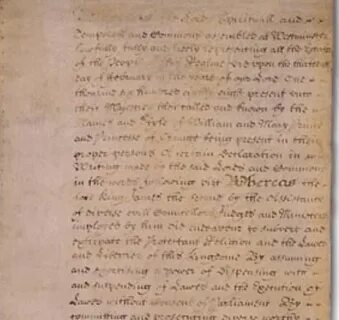 the Lords Spirituall and
Temporall and Commons assembled at Westminster
lawfully fully and freely representing all the Estates
of the People of this Realme did upon the thirteenth
day of February in the yeare of our Lord One
thousand six hundred eighty eight present unto
their Majesties then called and known by the
Names and Stile of William and Mary Prince
and Princesse of Orange being present in their
proper persons A certain Declaration in
Writeing made by the said Lords and Commons
in the words following vizt Whereas the
late King James the second by the Assistance
of diverse evill Councellors Judges and Ministers
imployed by him did endeavour to subvert and
extirpate the Protestant Religion and the Lawes
and Liberties of this Kingdome By assuming
and exerciseing a power of Dispensing with
and Suspending of Lawes and the Execution of
Lawes without Consent of Parliament By
committing and prosecuting diverse worthy